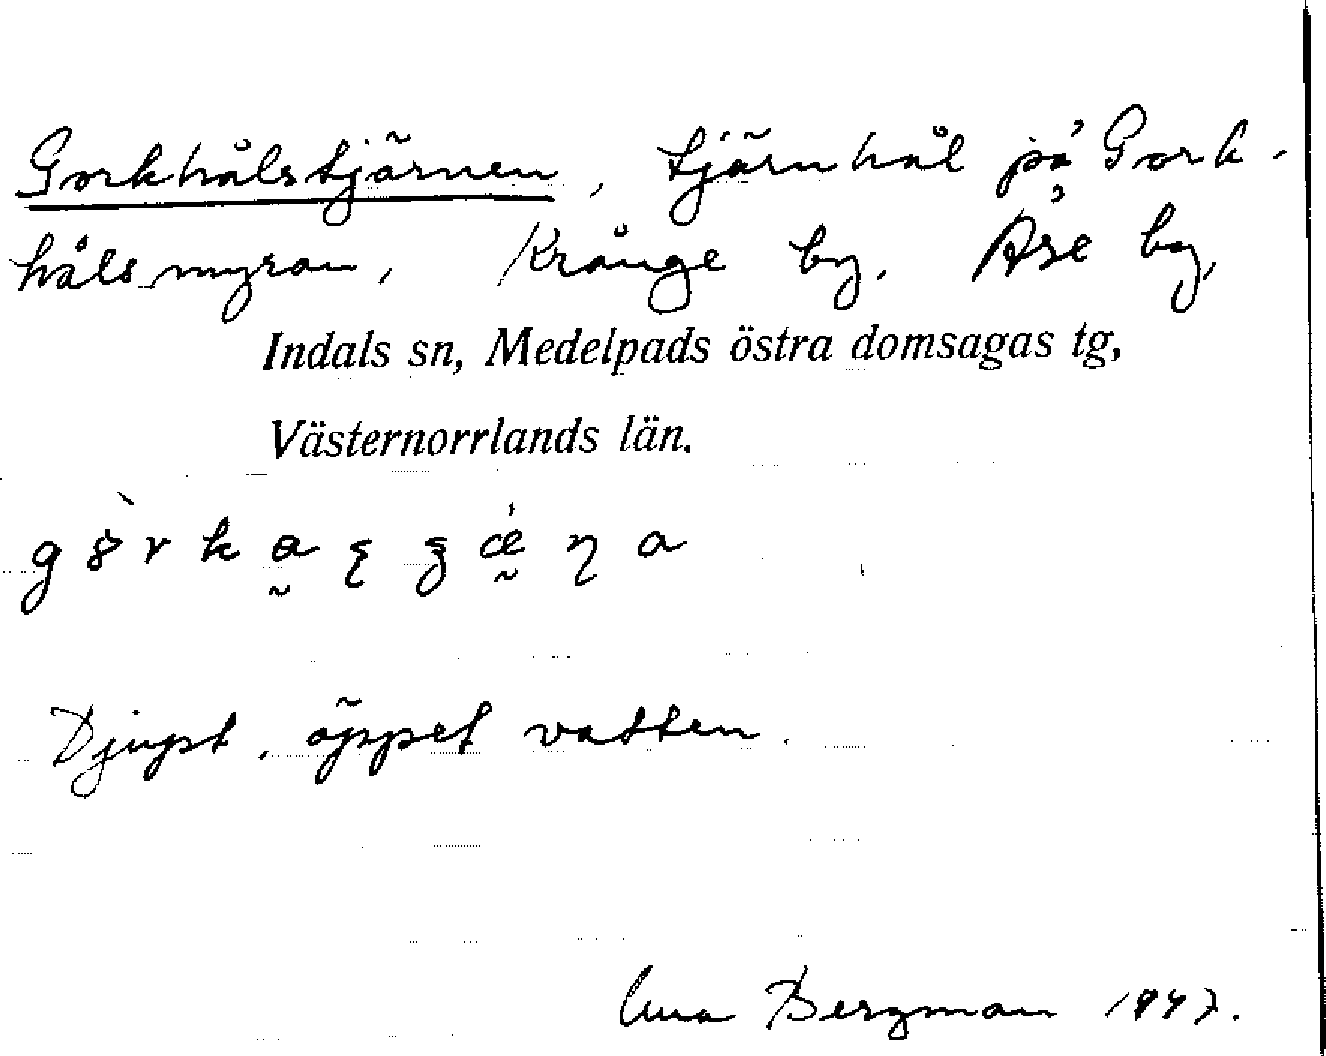 Gorkhålstjärnen, tjärnhål på Gork-
hålsmyran, Krånge by. Åse by,
Indals sn, Medelpads östra domsagas tg,
Västernorrlands län.
Djupt, öppet vatten.
Bergman 1947.